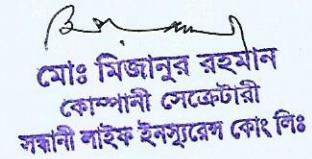 মোঃ মিজানুর রহমান
কোম্পানী সেক্রেটারী
সন্ধানী লাইফ ইনস্যুরেন্স কোং লিঃ